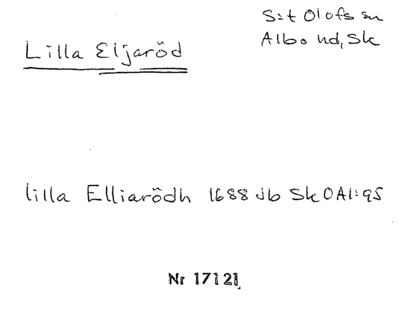 S:t Olofs sn
Albo hd, Sk
Lilla Eljaröd
lilla Elliarödh 1688 Jb SkOAl:95
Nr 17121